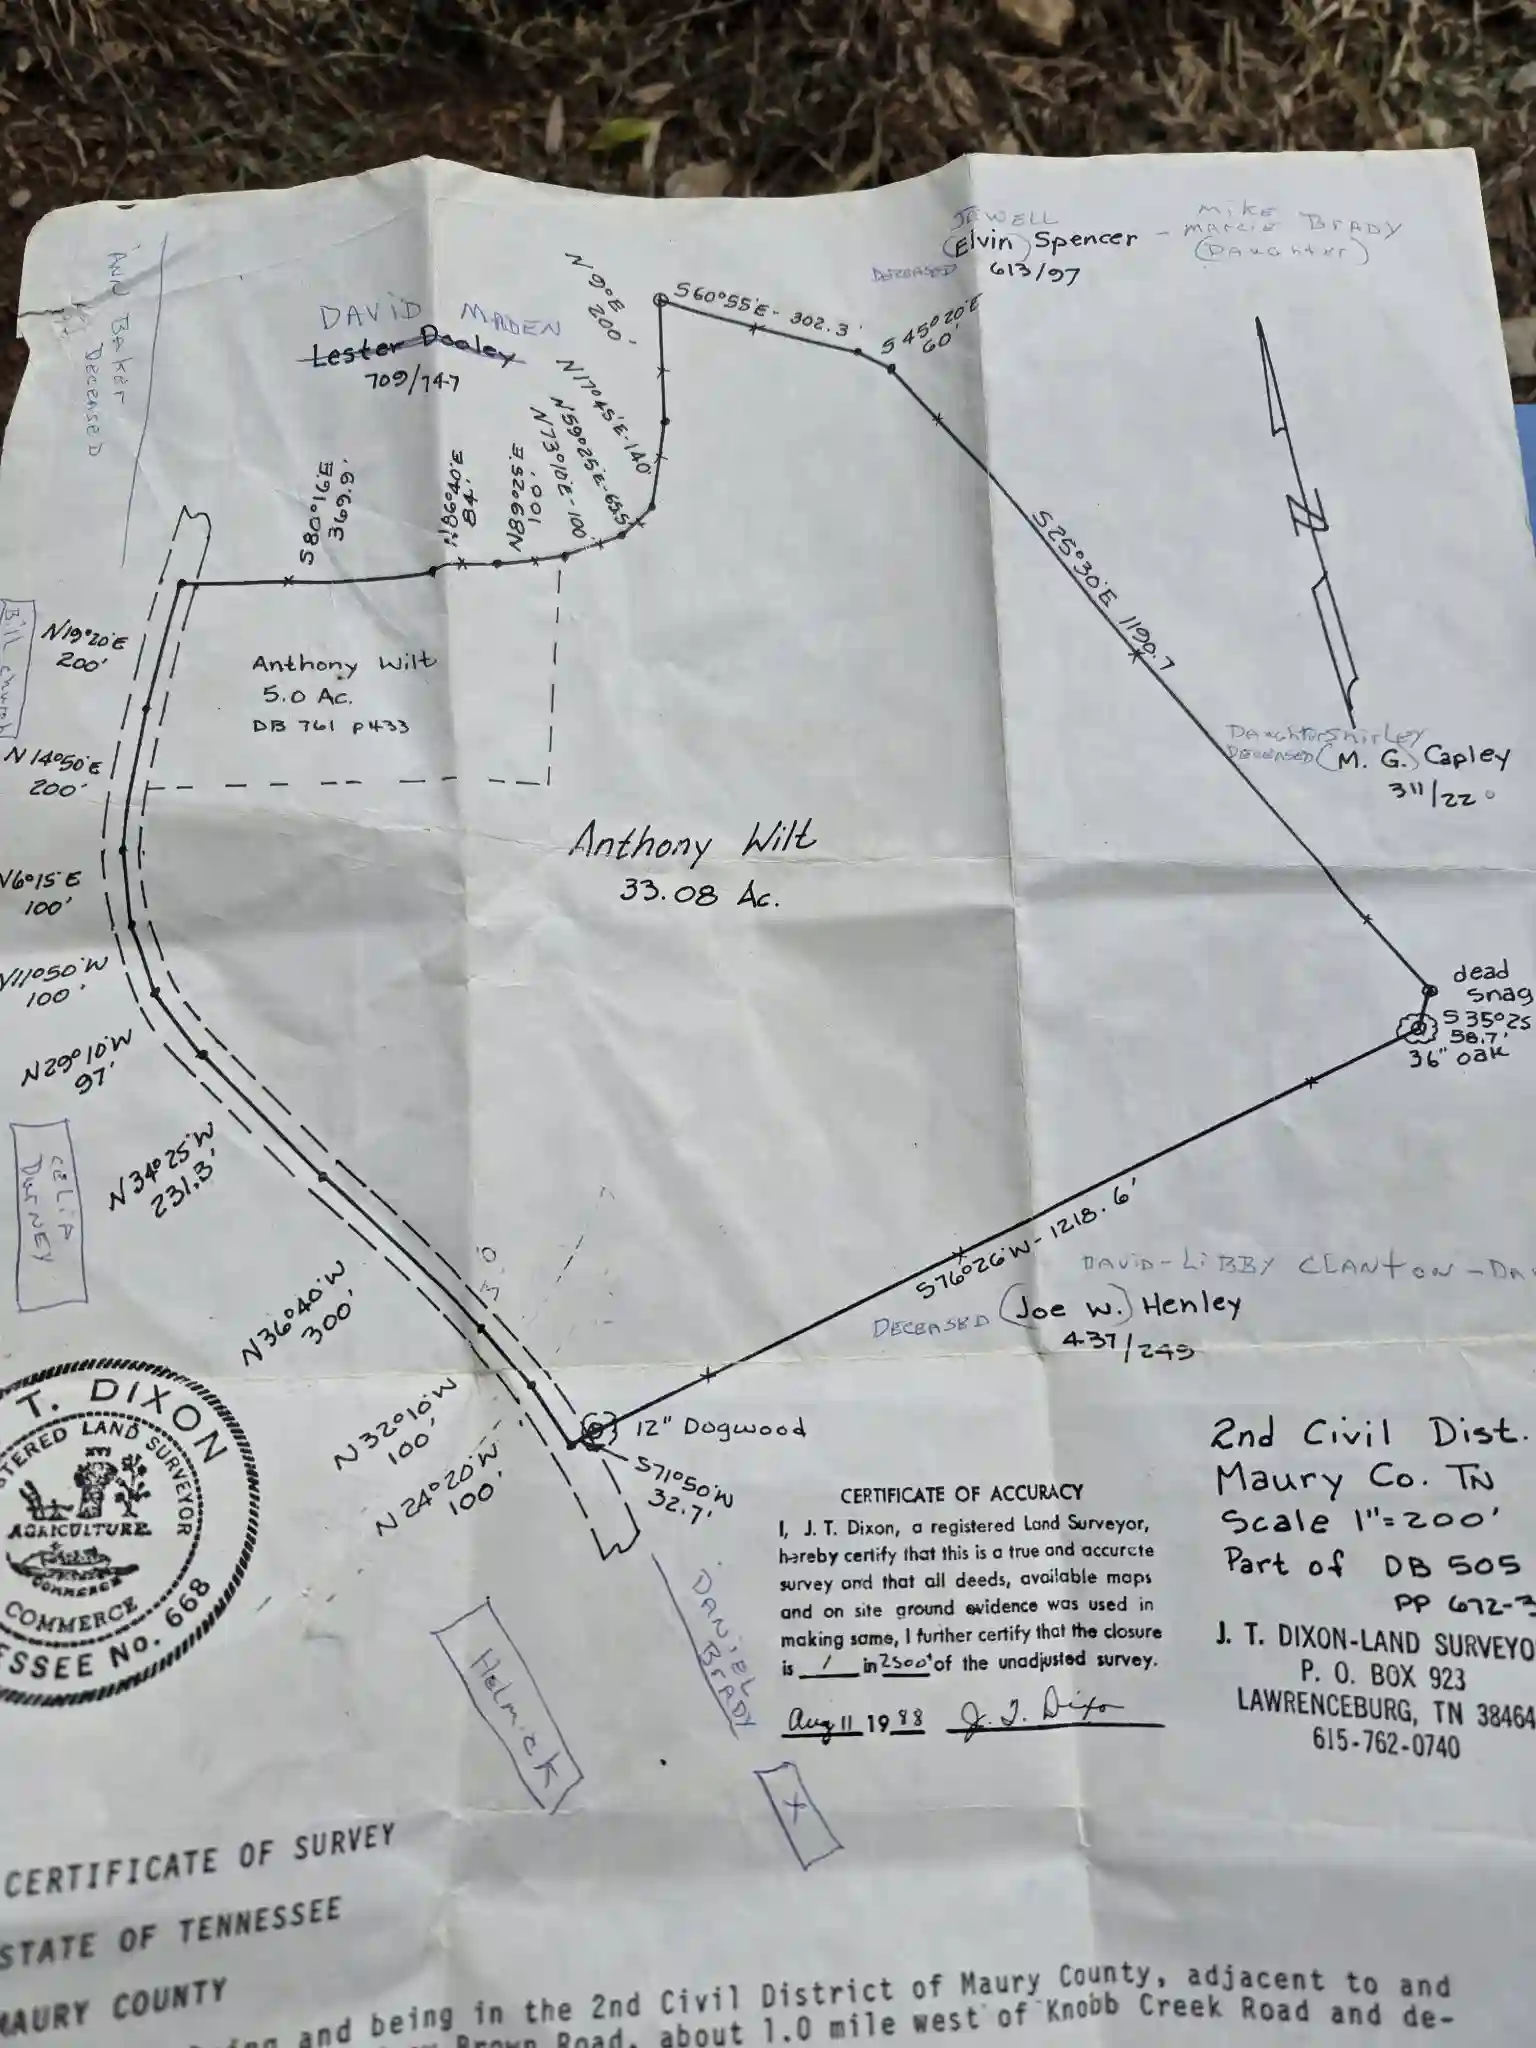 JEWELL
(Elvin) Spencer -
DECEASED 613/97
MIKE
MARCIE BRADY
(DAUGHTER)
ANN BAKER
DECEASED
DAVID MADEN
Lester Dooley
709/747
N 9° E
200'
S60°55'E - 302.3'
S 45°20'E
60'
N17°45'E-140'
N59°25'E-65.5
N73°10'E-100'
N86°25'E
100'
N86°40'E
84.'
S80°16'E
369.9'
S25°30'E 1190.7
Bill Church
N19°20'E
200'
Anthony Wilt
5.0 Ac.
DB 761 P433
N14°50'E
200'
DAUGHTER SHIRLEY
DECEASED (M. G.) Capley
311/22
Anthony Wilt
33.08 Ac.
N6°15'E
100'
N11°50'W
100'
dead
snag
S35°25
58.7'
36" oak
N29°10'W
97'
CELIA
DURNEY
N34°25'W
231.3'
S76°26'W - 1218.6'
DAVID-LIBBY CLANTON -
DECEASED (Joe W.) Henley
437/245
N36°40'W
300'
N32°10'W
100'
N24°20'W
100'
12" Dogwood
S71°50'W
32.7'
T. DIXON
LAND SURVEYOR
AGRICULTURE
COMMERCE
COMMERCE
No. 668
2nd Civil Dist.
Maury Co. TN
Scale 1"=200'
Part of DB 505
PP 672-
J. T. DIXON-LAND
P. O. BOX 923
LAWRENCEBURG, TN 38464
615-762-0740
CERTIFICATE OF ACCURACY
I, J. T. Dixon, a registered Land Surveyor,
hereby certify that this is a true and accurate
survey and that all deeds, available maps
and on site ground evidence was used in
making same, I further certify that the closure
is 1 in 2500' of the unadjusted survey.
Aug 11 1988 J. T. Dixon
DANIEL
BRADY
Helmick
X
CERTIFICATE OF SURVEY
STATE OF TENNESSEE
MAURY COUNTY
and being in the 2nd Civil District of Maury County, adjacent to and
Brown Road, about 1.0 mile west of Knobb Creek Road and de-